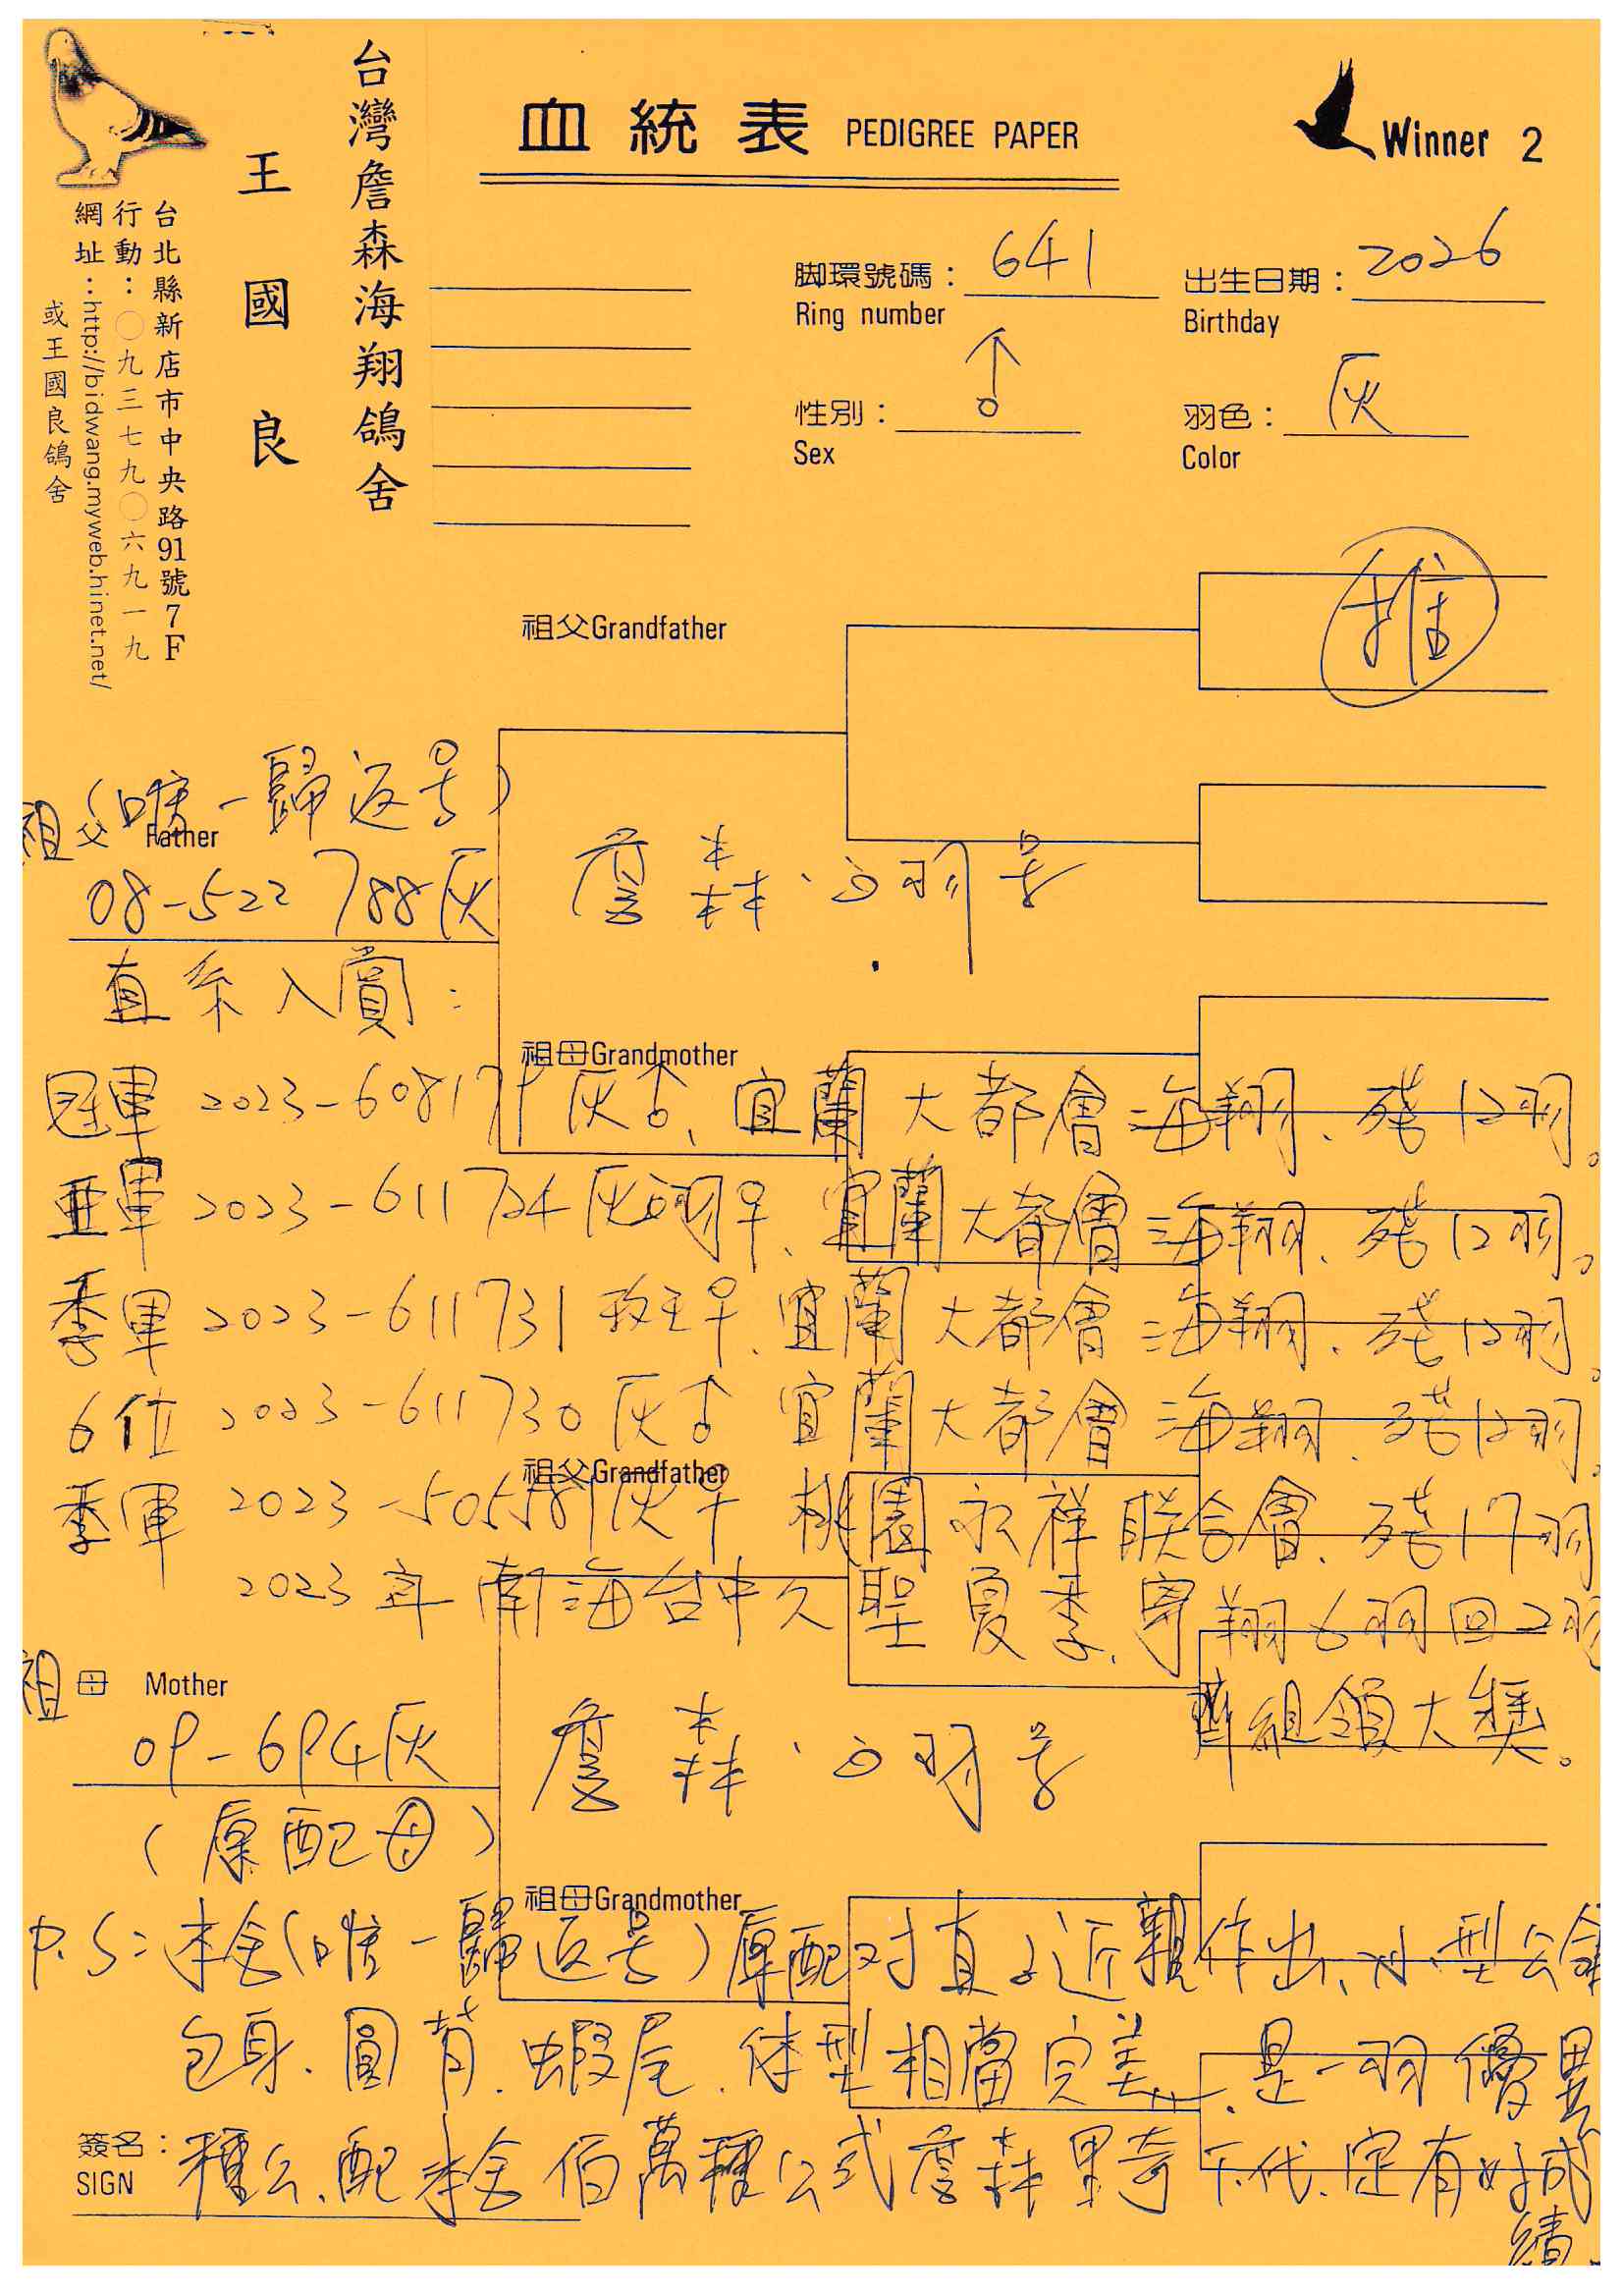 台灣詹森海翔鴿舍
王國良
台北縣新店市中央路91號7F
行動：○九三七九○六九一九
網址：http://bidwang.myweb.hinet.net/
或王國良鴿舍
血統表 PEDIGREE PAPER
Winner 2
脚環號碼：641
Ring number
出生日期：2026
Birthday
性別：♂
Sex
羽色：灰
Color
推
祖父Grandfather
(唯一歸返号)
祖父 Father
08-522788灰
詹森、白羽号
直系入賞：
祖母Grandmother
冠軍 2023-608179灰♂、宜蘭大都會海翔、殘12羽。
亜軍 2023-611724灰白羽♀、宜蘭大都會海翔、殘12羽。
季軍 2023-611731 班王♀、宜蘭大都會海翔、殘12羽。
6位 2023-611730灰♂ 宜蘭大都會海翔、殘12羽。
祖父Grandfather
季軍 2023-505581灰♀ 桃園永祥联合會、殘17羽
2023年南海台中久聖夏季、寄翔6羽回2羽
齊組領大獎。
祖母 Mother
09-694灰
詹森、白羽号
(原配母)
祖母Grandmother
P.S：本舍(唯一歸返号)原配对直子近親作出、小型公鴿
包身、圓背、蝦尾、体型相當完美、是一羽優異
簽名：
SIGN
種公、配本舍佰萬種公式詹森黑奇下代、定有好成
績、